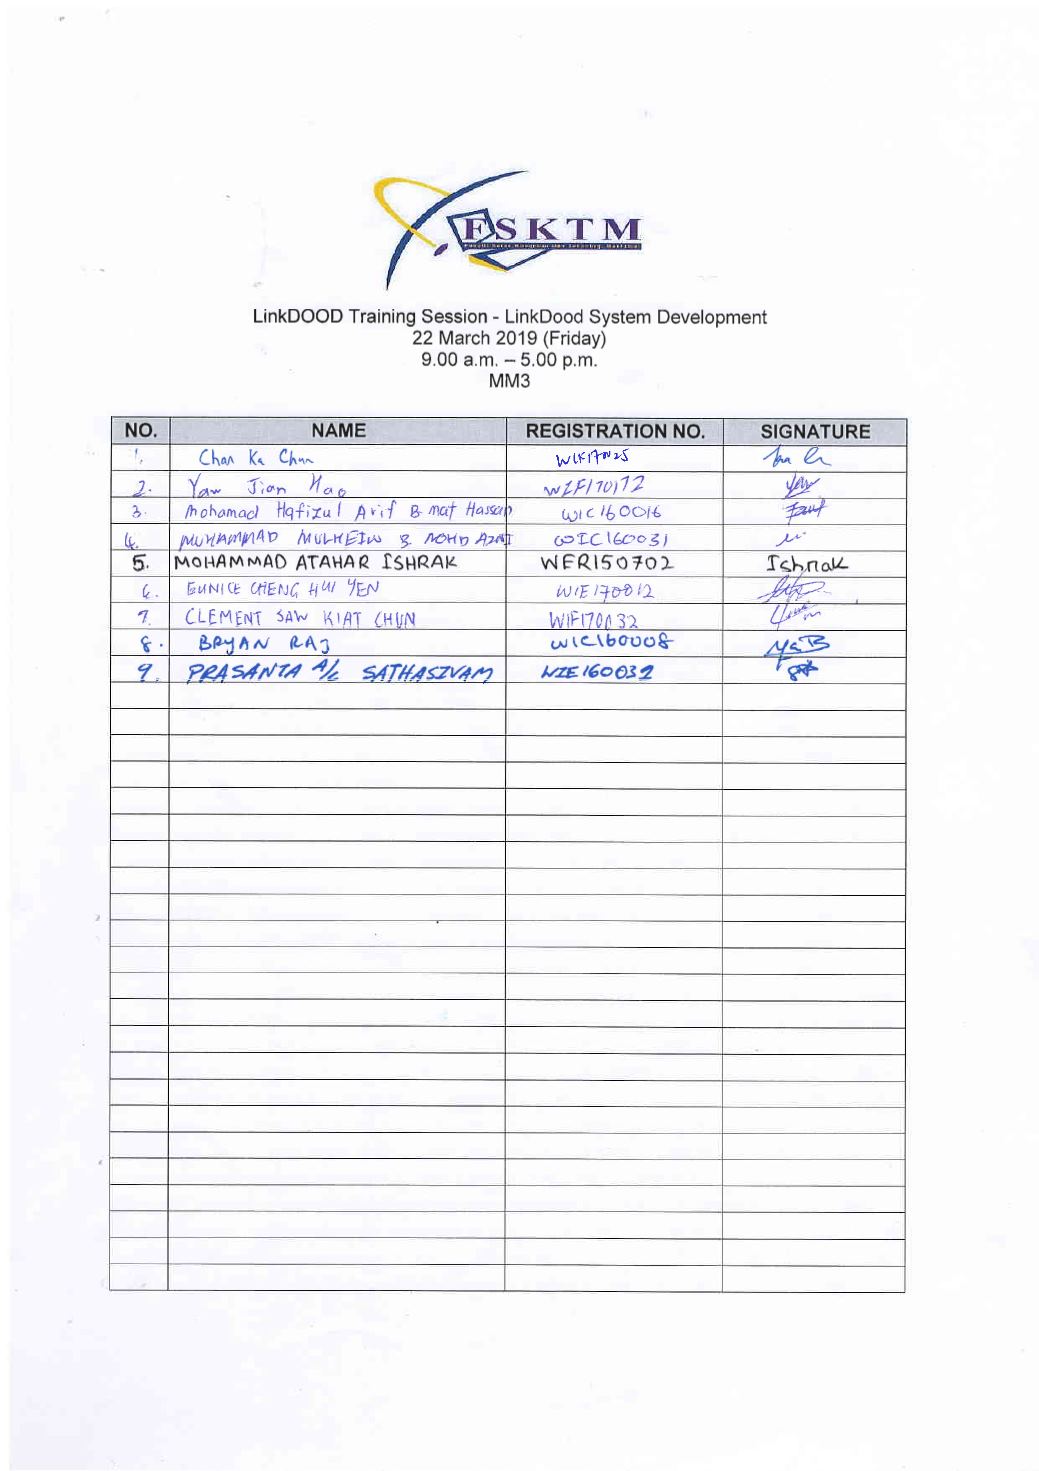 FSKTM
LinkDOOD Training Session - LinkDood System Development
22 March 2019 (Friday)
9.00 a.m. – 5.00 p.m.
MM3
NO. NAME REGISTRATION NO. SIGNATURE
1. Chan Ka Chun
2. Yaw Jian Hao WIF170172 Yaw
3. Mohamad Hafizul Arif B mat Hassan WIC160016
4. MUHAMMAD B MOHD AZMI WIC160031
5. MOHAMMAD ATAHAR ISHRAK WER150702 Ishrak
6. EUNICE CHENG HUI YEN WIE170012
7. CLEMENT SAW KIAT CHUN WIF170032
8. BRYAN RAJ WIC160008
9. PRASANTA A/L SATHASIVAM WIE160032